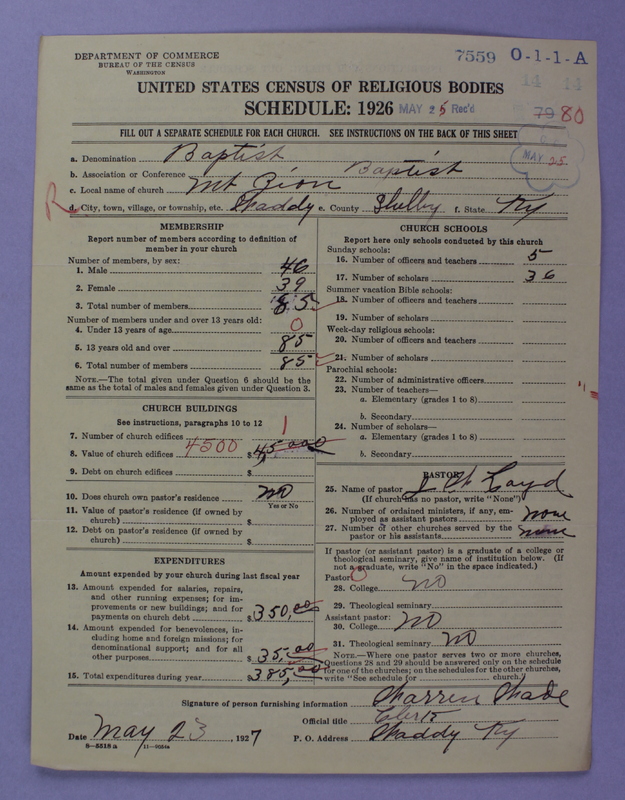 DEPARTMENT OF COMMERCE
BUREAU OF THE CENSUS
WASHINGTON
7559 O-1-1-A
14 14
UNITED STATES CENSUS OF RELIGIOUS BODIES
SCHEDULE: 1926 MAY 25 Rec'd
79 80
FILL OUT A SEPARATE SCHEDULE FOR EACH CHURCH. SEE INSTRUCTIONS ON THE BACK OF THIS SHEET
MAY 25
a. Denomination Baptist
b. Association or Conference Baptist
c. Local name of church Mt Zion
R
d. City, town, village, or township, etc. Waddy e. County Shelby f. State Ky
MEMBERSHIP
Report number of members according to definition of
member in your church
Number of members, by sex:
1. Male 46
2. Female 39
3. Total number of members 85
Number of members under and over 13 years old:
4. Under 13 years of age 0
5. 13 years old and over 85
6. Total number of members 85
NOTE.—The total given under Question 6 should be the
same as the total of males and females given under Question 3.
CHURCH BUILDINGS
See instructions, paragraphs 10 to 12
7. Number of church edifices 1
8. Value of church edifices 4500 $
9. Debt on church edifices $
10. Does church own pastor's residence no
Yes or No
11. Value of pastor's residence (if owned by
church) $
12. Debt on pastor's residence (if owned by
church) $
EXPENDITURES
Amount expended by your church during last fiscal year
13. Amount expended for salaries, repairs,
and other running expenses; for im-
provements or new buildings; and for
payments on church debt $350,00
14. Amount expended for benevolences, in-
cluding home and foreign missions; for
denominational support; and for all
other purposes $35,00
15. Total expenditures during year $385,00
CHURCH SCHOOLS
Report here only schools conducted by this church
Sunday schools:
16. Number of officers and teachers 5
17. Number of scholars 36
Summer vacation Bible schools:
18. Number of officers and teachers
19. Number of scholars
Week-day religious schools:
20. Number of officers and teachers
21. Number of scholars
Parochial schools:
22. Number of administrative officers
23. Number of teachers—
a. Elementary (grades 1 to 8)
b. Secondary
24. Number of scholars—
a. Elementary (grades 1 to 8)
b. Secondary
PASTOR
25. Name of pastor
(If church has no pastor, write "None")
26. Number of ordained ministers, if any, em-
ployed as assistant pastors none
27. Number of other churches served by the
pastor or his assistants none
If pastor (or assistant pastor) is a graduate of a college or
theological seminary, give name of institution below. (If
not a graduate, write "No" in the space indicated.)
Pastor:
28. College no
29. Theological seminary
Assistant pastor:
30. College no
31. Theological seminary no
NOTE.—Where one pastor serves two or more churches,
Questions 28 and 29 should be answered only on the schedule
for one of the churches; on the schedules for the other churches,
write "See schedule for church.)
Signature of person furnishing information Warren Wade
Official title Clerk
Date May 23, 1927 P. O. Address Waddy Ky
8—5518 a 11—9054a